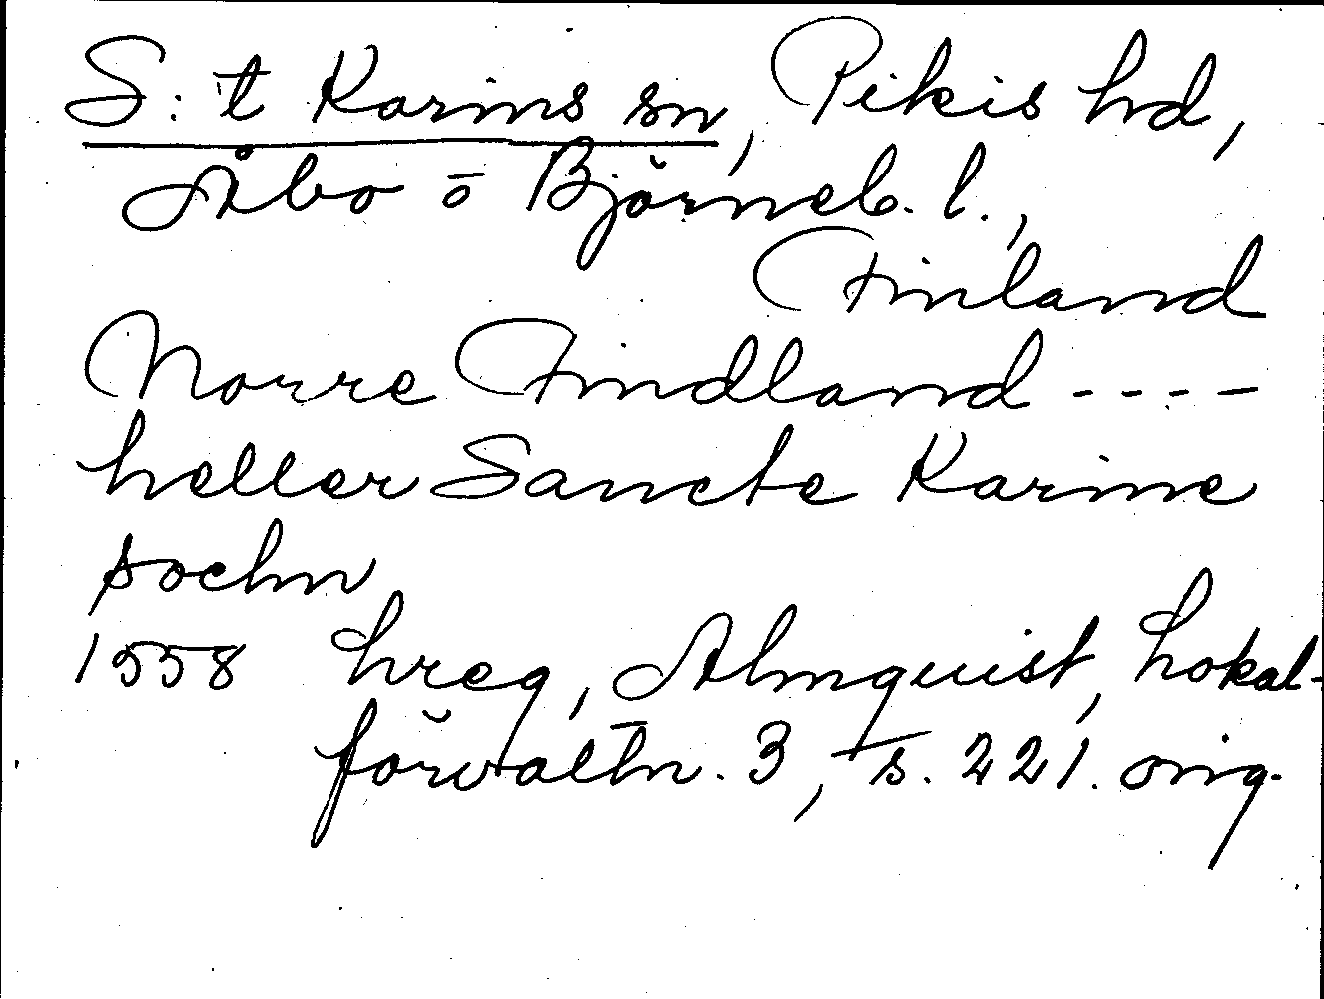 S:t Karins sn, Pikis hd,
Åbo o Björneb. l.,
Finland
Norre Findland ----
heller Sancte Karine
sochn
1558 hreg, Almquist, Lokal-
förvaltn. 3, s. 221. orig.